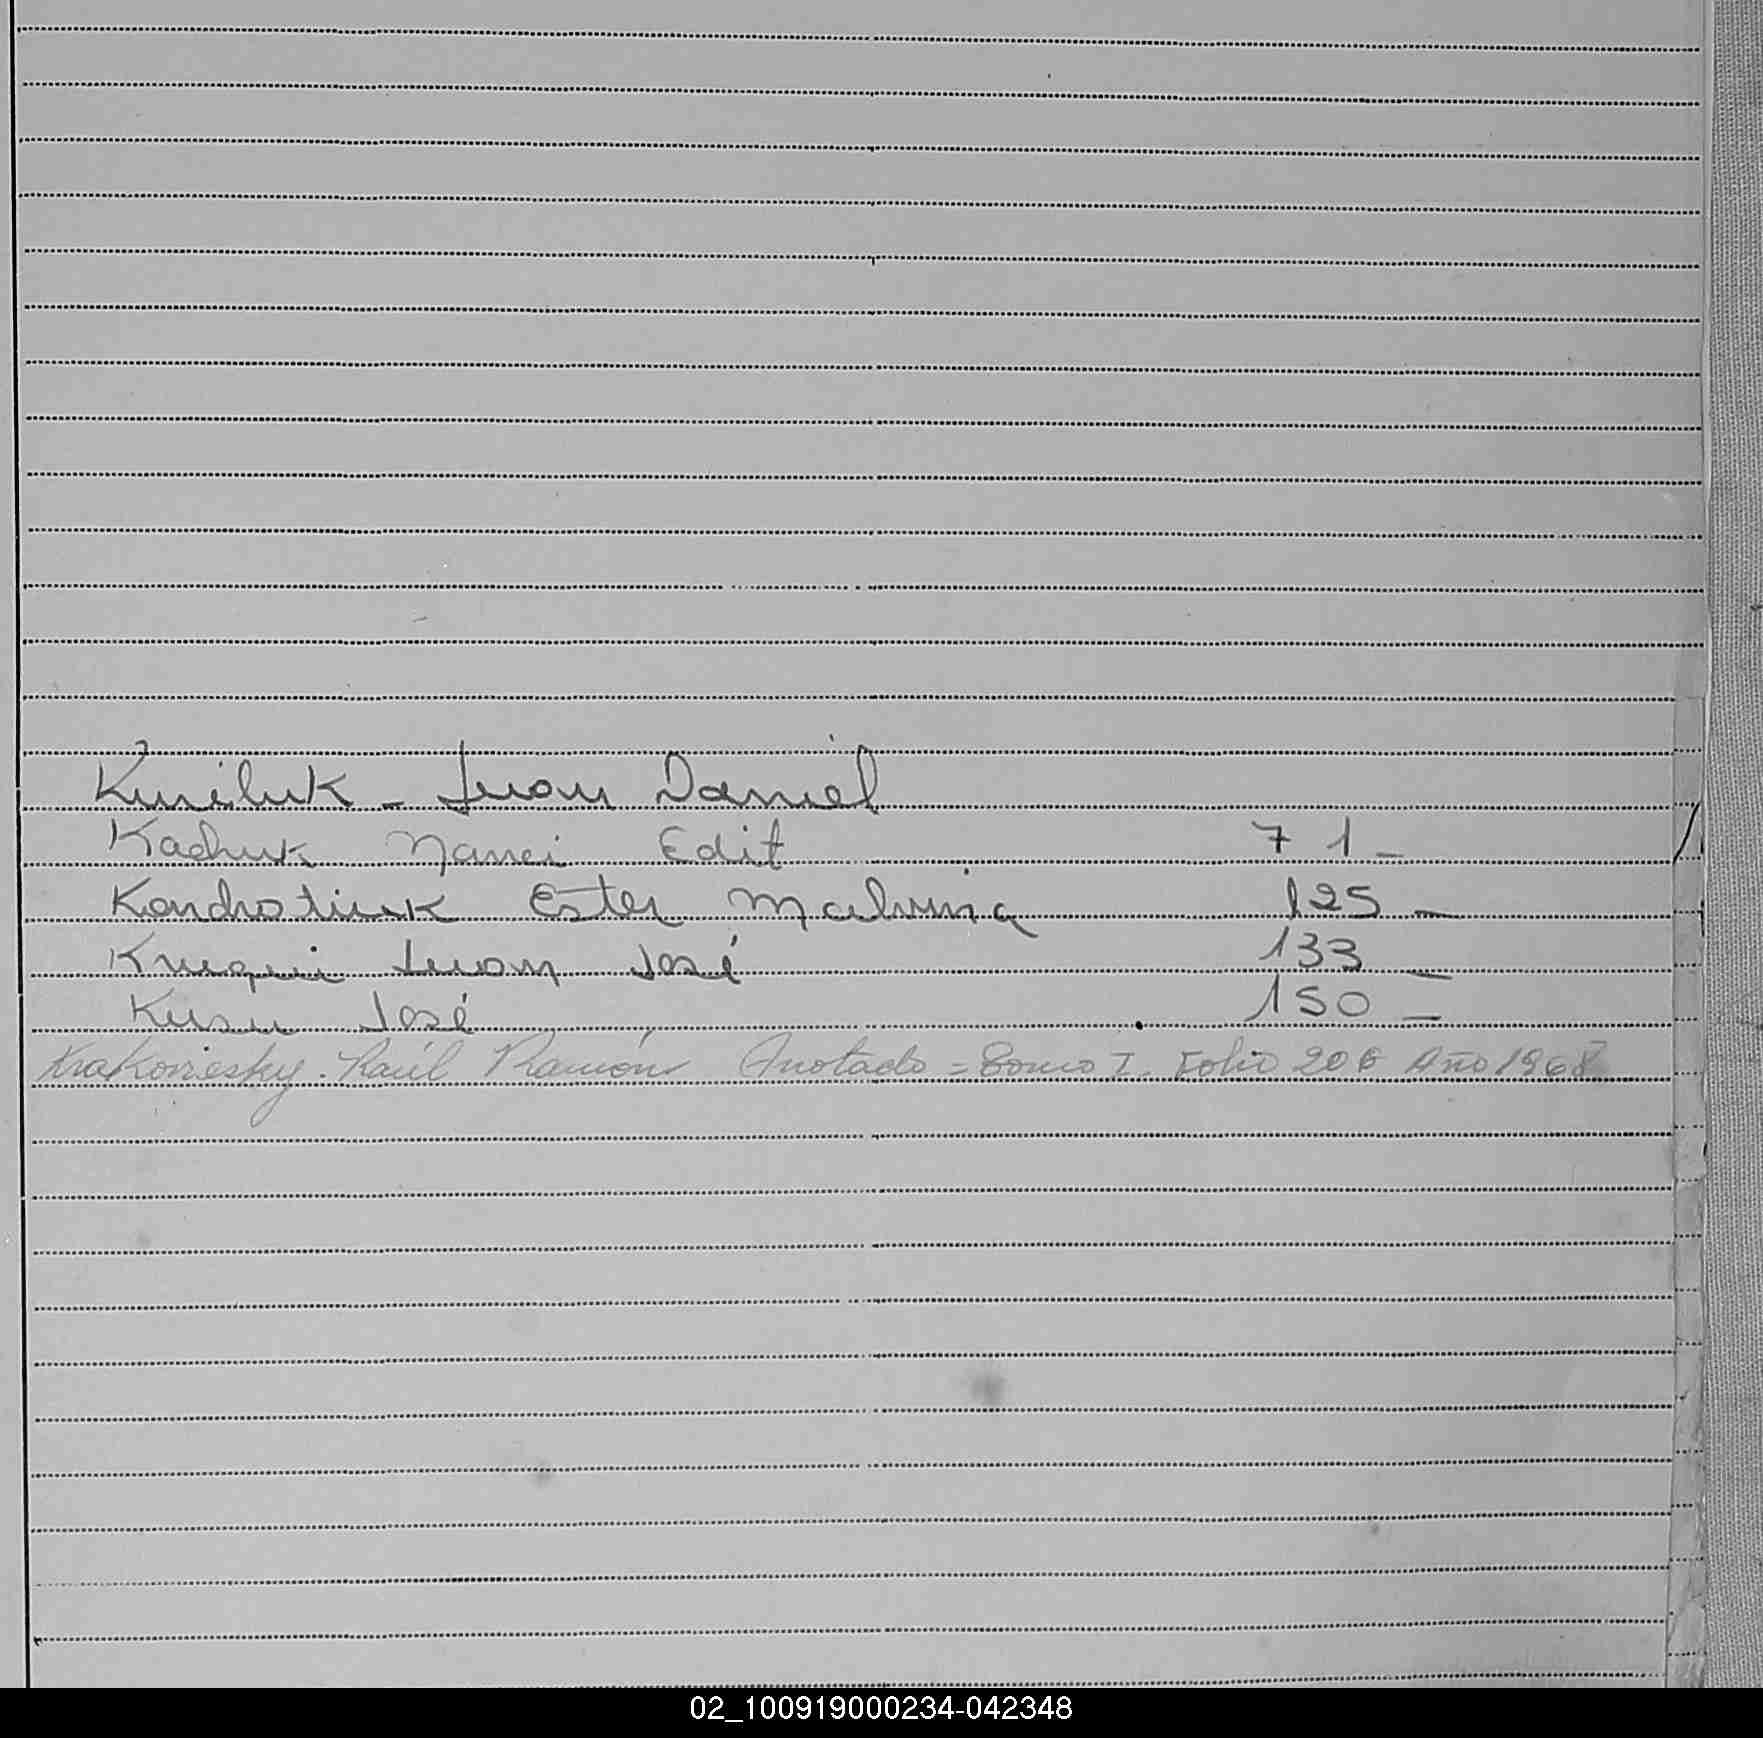 Kuriluk - Juan Daniel
Kachuk Nanci Edit 71 -
Kondratiuk Ester Malvina 125 -
Juan José 133 -
Kusu José 150 -
Krakoviesky. Raúl Ramón Anotado = Tomo I. Folio 206 Año 1968
02_100919000234-042348